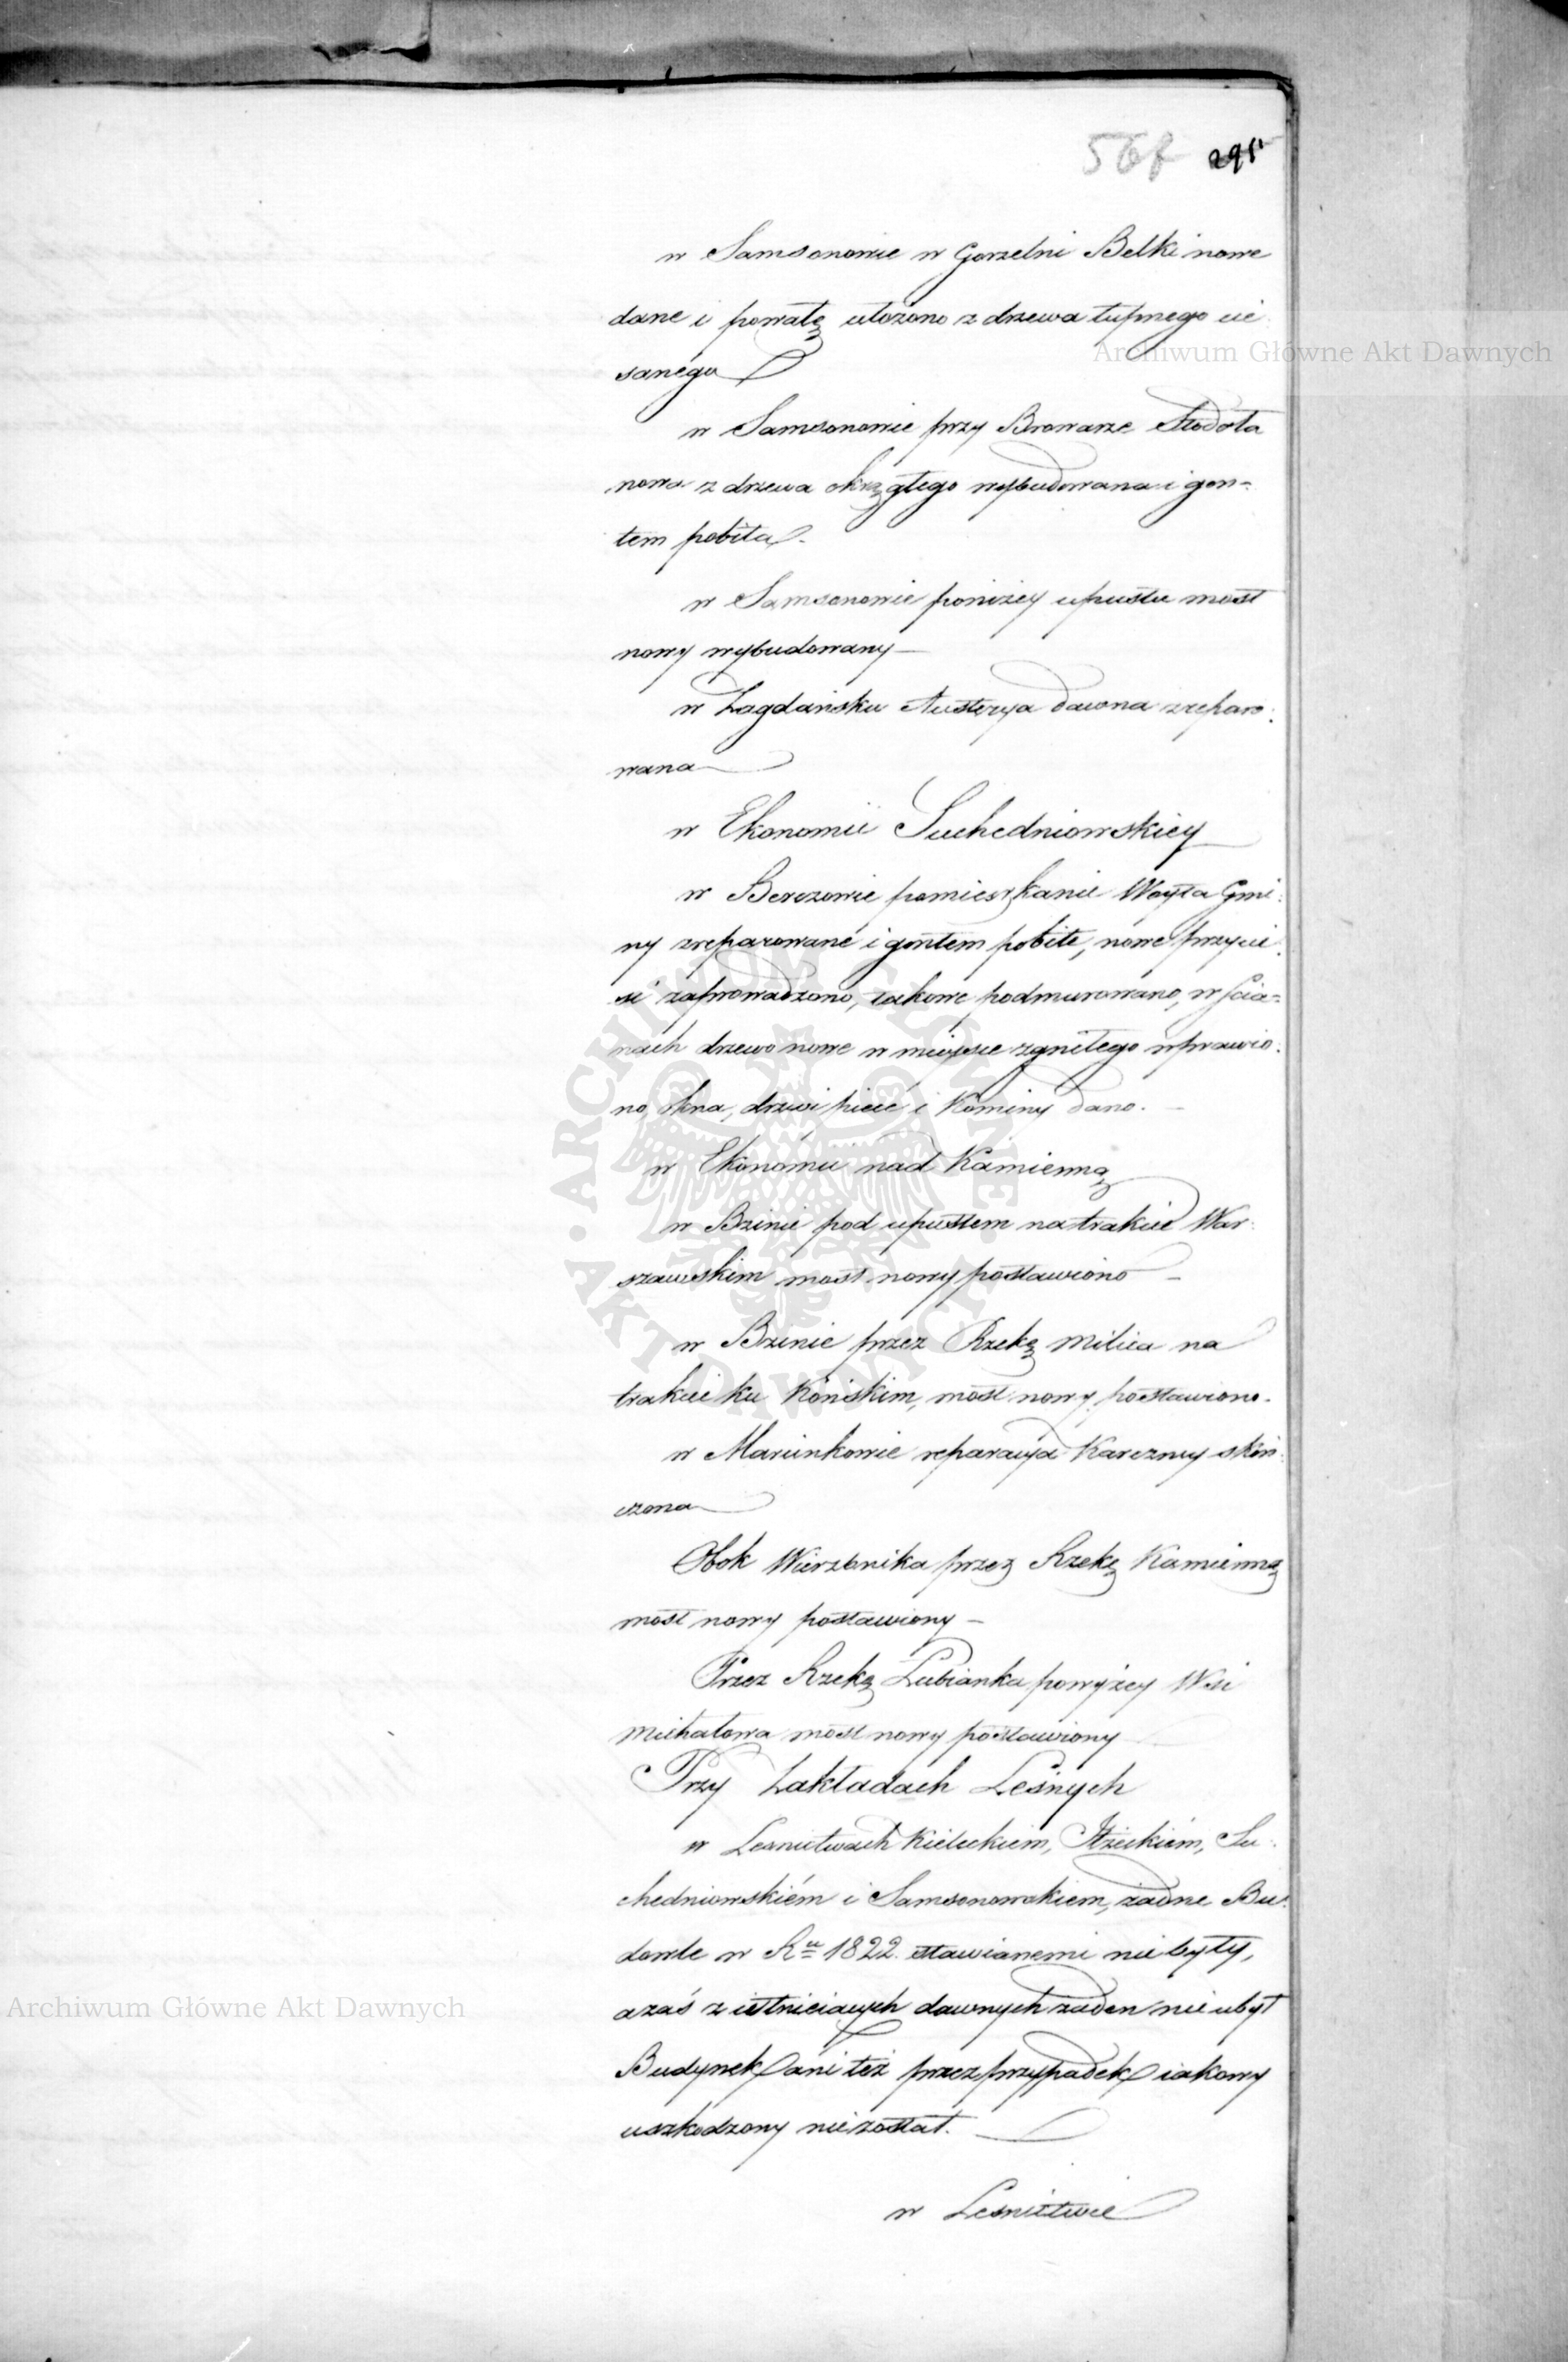 567 295
w Samsonowie w Gorzelni Belki nowe
dane i powałę ułożono z drzewa łupnego cie
sanego
w Samsonowie przy Browarze Stodoła
nowa z drzewa okrągłego wybudowana i gon-
tem pobita.
w Samsonowie poniżey upustu most
nowy wybudowany —
w Zagdańsku Austerya dawna zreparo:
wana
w Ekonomii Suchedniowskiey
w Berezowie pomieszkanie Woyta Gmi:
ny zreparowane i gontem pobite, nowe przycie:
si zaprowadzono, takowe podmurowano, w scia=
nach drzewo nowe w mieysce zgniłego wprawio:
no, okna, drzwi piece i Kominy dano. —
w Ekonomii nad Kamienną
w Bzinie pod upustem na trakcie War:
szawskim most nowy postawiono —
w Bzinie przez Rzekę Milica na
trakcie ku Końskim, most nowy postawiono.
w Marcinkowie reparacya Karczmy skoń:
czona
Obok Wierzbnika przez Rzekę Kamienną
most nowy postawiony —
Przez Rzekę Lubianka powyżey Wsi
Michałowa most nowy postawiony
Przy Zakładach Leśnych
w Lesnictwach Kieleckiem, Iłżeckiém, Su:
chedniowskiém i Samsonowskiem, żadne Bu:
dowle w Ru 1822. stawianemi nie były,
azaś z istnieiących dawnych żaden nie ubył
Budynek ani też przez przypadek iakowy
uszkodzony nie został.
w Lesnictwie
Archiwum Główne Akt Dawnych
Archiwum Główne Akt Dawnych
ARCHIWUM GŁÓWNE AKT DAWNYCH